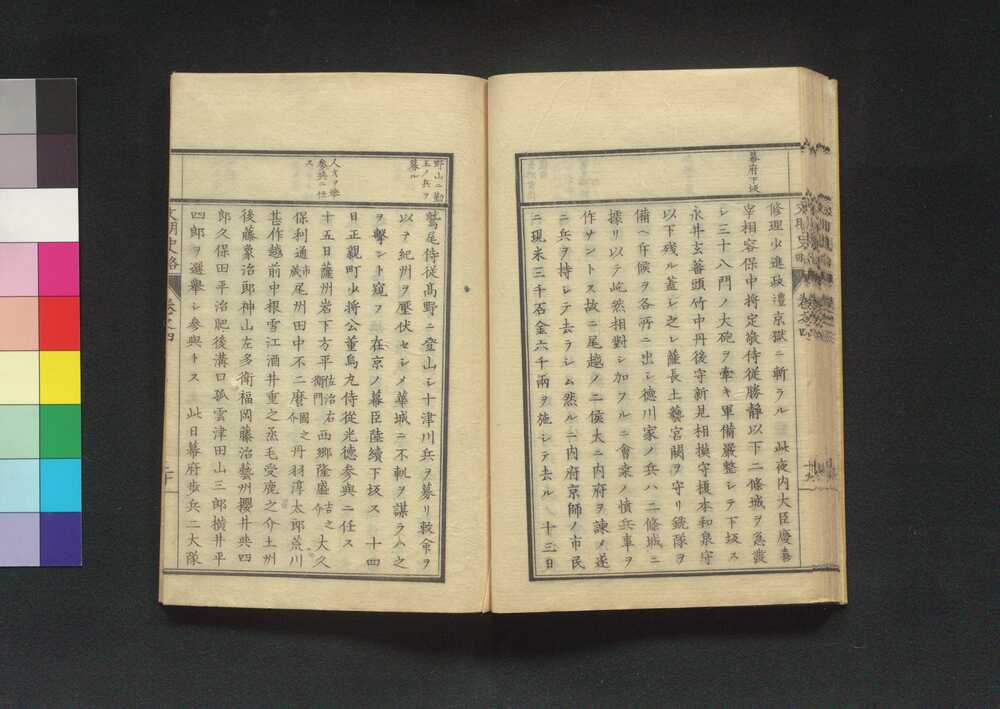 幕府下坂
修理少進政禮京獄ニ斬ラル 此夜内大臣慶喜
宰相容保中将定敬侍従勝靜以下二條城ヲ急發
シ三十八門ノ大砲ヲ牽キ軍備嚴整シテ下坂ス
永井玄蕃頭竹中丹後守新見相摸守榎本和泉守
以下残ル蓋レ之レ薩長土藝宮闕ヲ守リ銃隊ヲ
備ヘ斥候ヲ各所ニ出シ德川家ノ兵ハ二條城ニ
據リ以テ屹然相對シ加フルニ會桒ノ憤兵事ヲ
作サントス故ニ尾越ノ二侯大ニ内府ヲ諫メ遂
ニ兵ヲ持シテ去ラシム然ルニ内府京師ノ市民
ニ現米三千石金六千兩ヲ施シテ去ル 十三日
野山ニ勤
王ノ兵ヲ
募ル
人才ヲ擧
参與ニ任
ス
鷲尾侍従髙野ニ登山シ十津川兵ヲ募リ敕命ヲ
以テ紀州ヲ壓伏セシメ華城ニ不軌ヲ謀ラム之
ヲ擊ント窺フ 在京ノ幕臣陸續下坂ス 十四
日正親町少将公董烏丸侍従光德参與ニ任ス
十五日薩州岩下方平佐治右衛門西郷隆盛吉之介大久
保利通市藏尾州田中不二麿國之介丹羽淳太郎荒川
甚作越前中根雪江酒井重之丞毛受鹿之介土州
後藤象治郎神山左多衛福岡藤治藝州櫻井與四
郎久保田平治肥後溝口孤雲津田山三郎横井平
四郎ヲ選舉シ参與トス 此日幕府歩兵二大隊
文明史略 巻之四